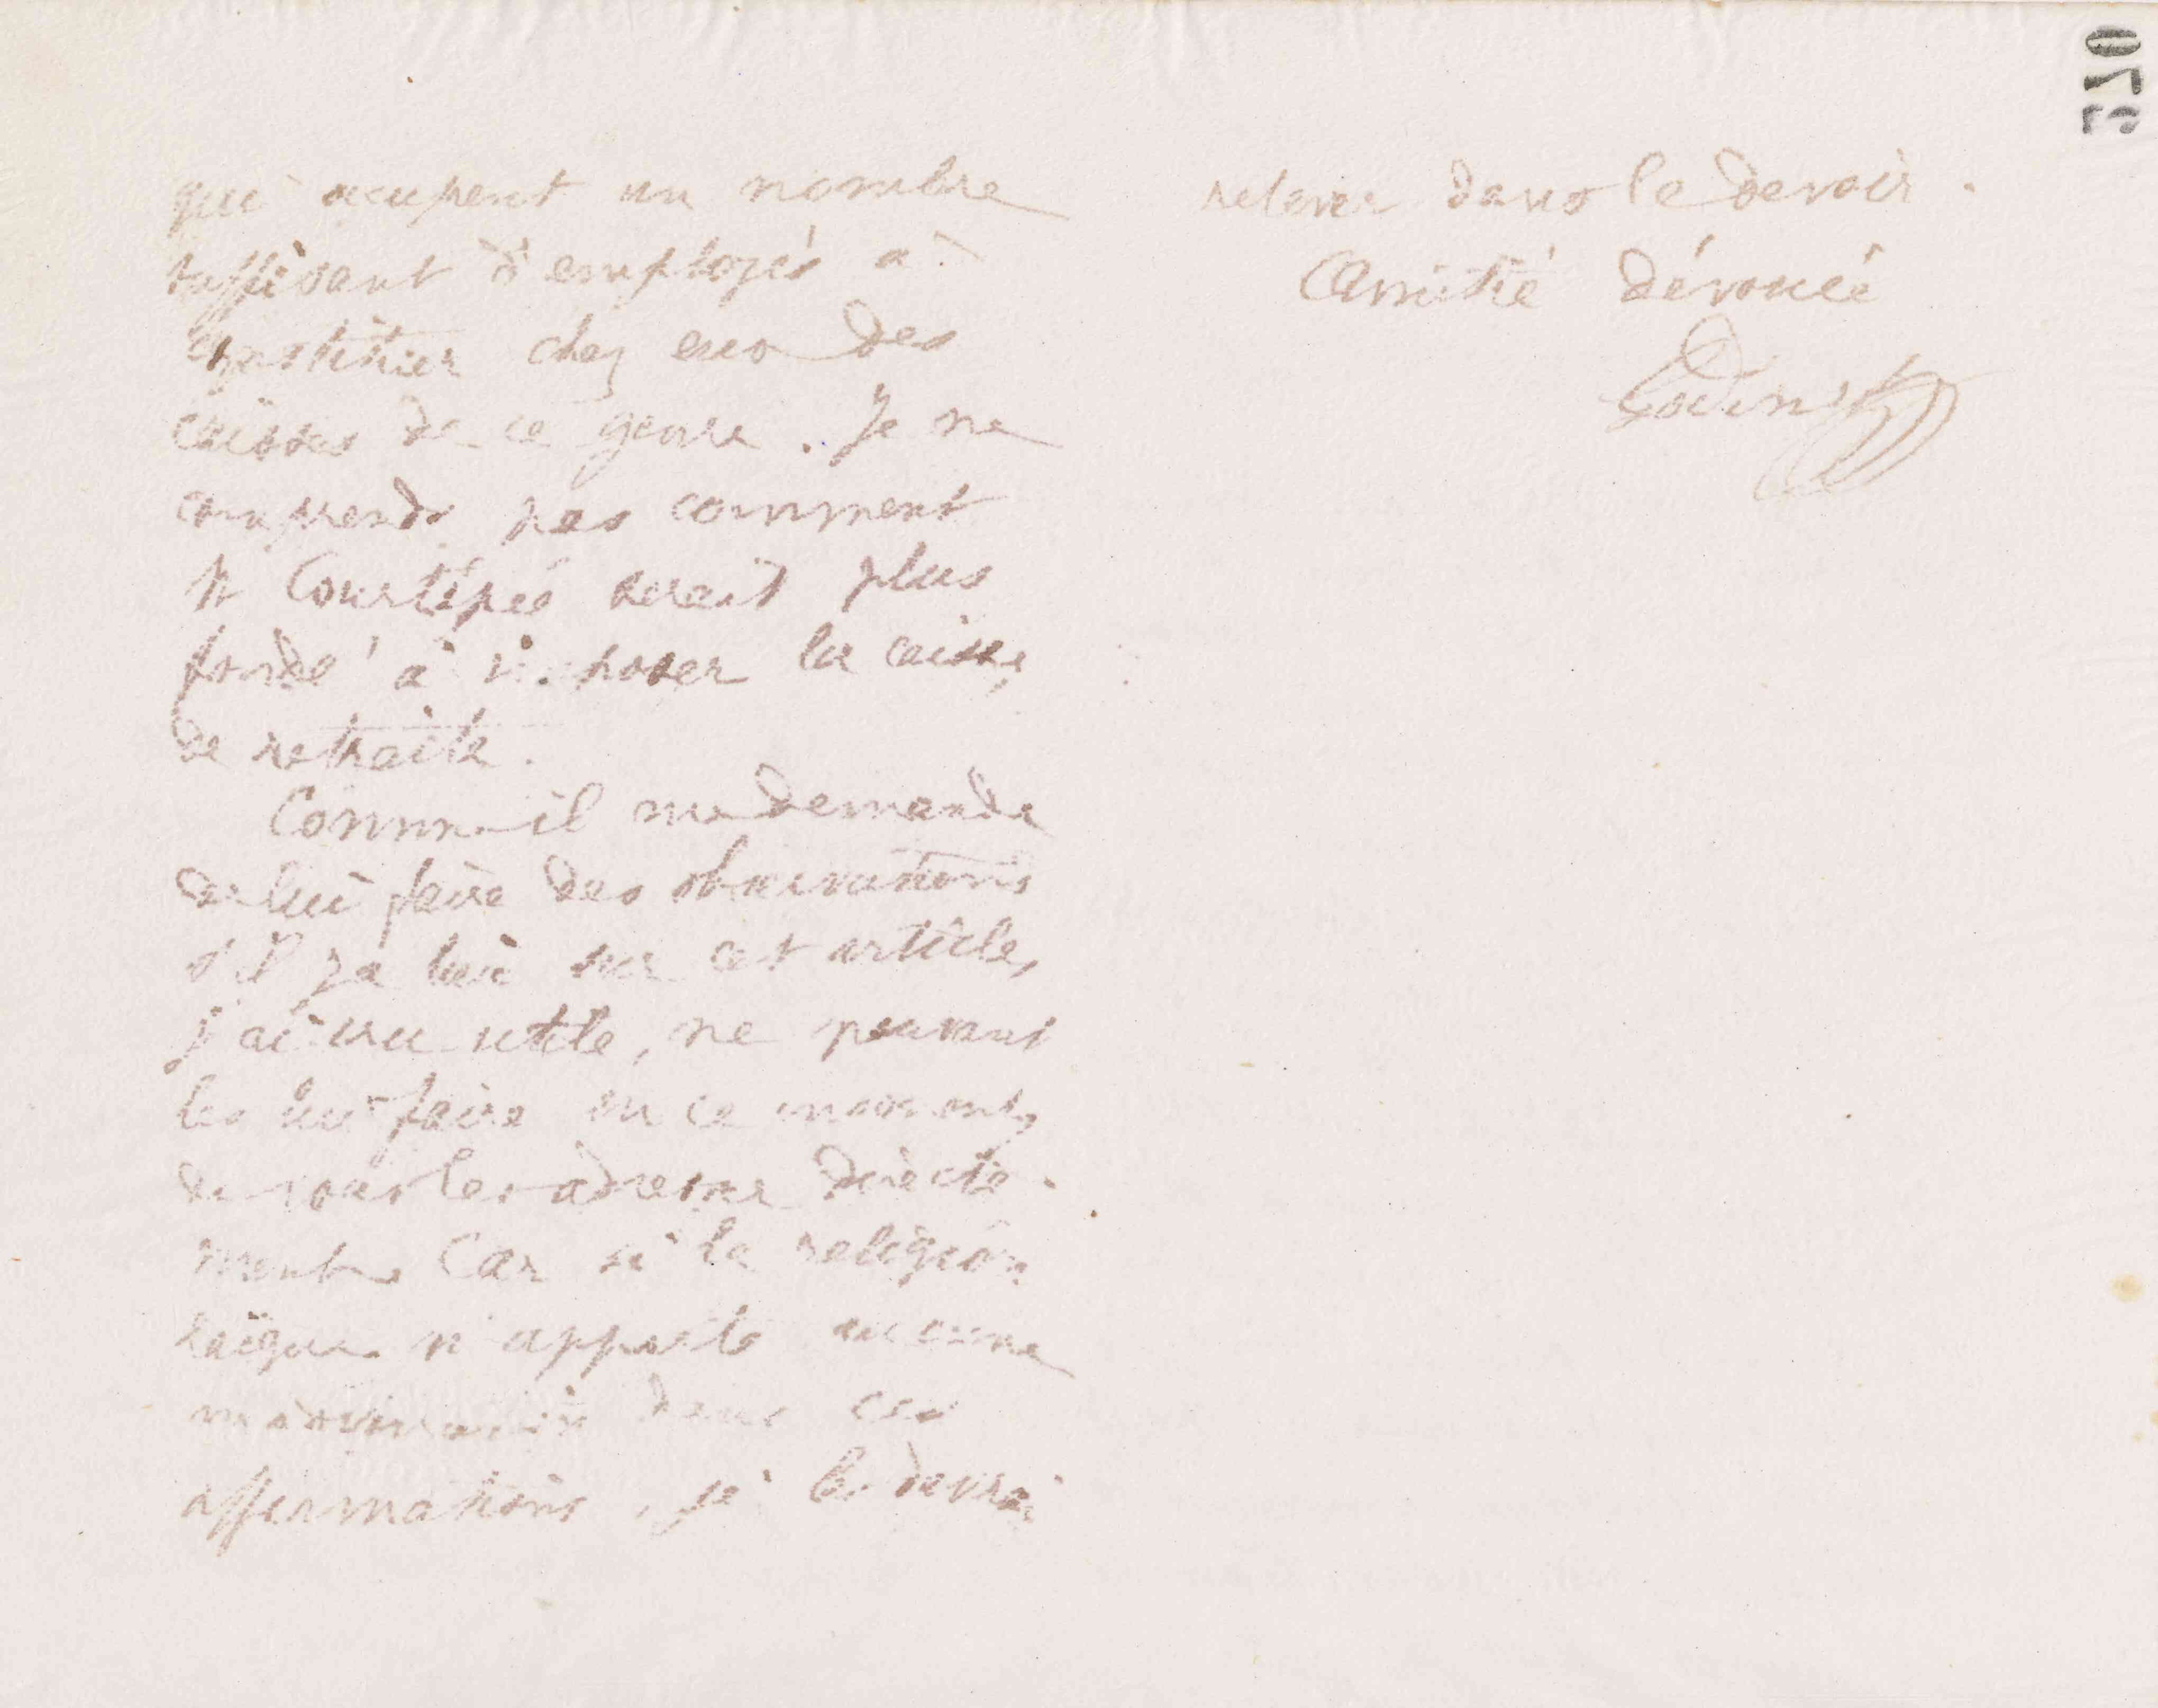 qui occupent un nombre
suffisant d'employés à
constituer chez eux des
caisses de ce genre. Je ne
comprends pas comment
M Courtépée serait plus
fondé à imposer la caisse
de retraite.
Comme il me demande
de lui faire des observations
s'il y a lieu sur cet article,
j'ai cru utile, ne pouvant
les lui faire en ce moment,
de vous les adresser directe-
ment. Car si la religion
laïque n'apporte aucune
dans ces
affirmations, je le devrai
relever dans le devoir.
Amitié dévouée
Godin
570